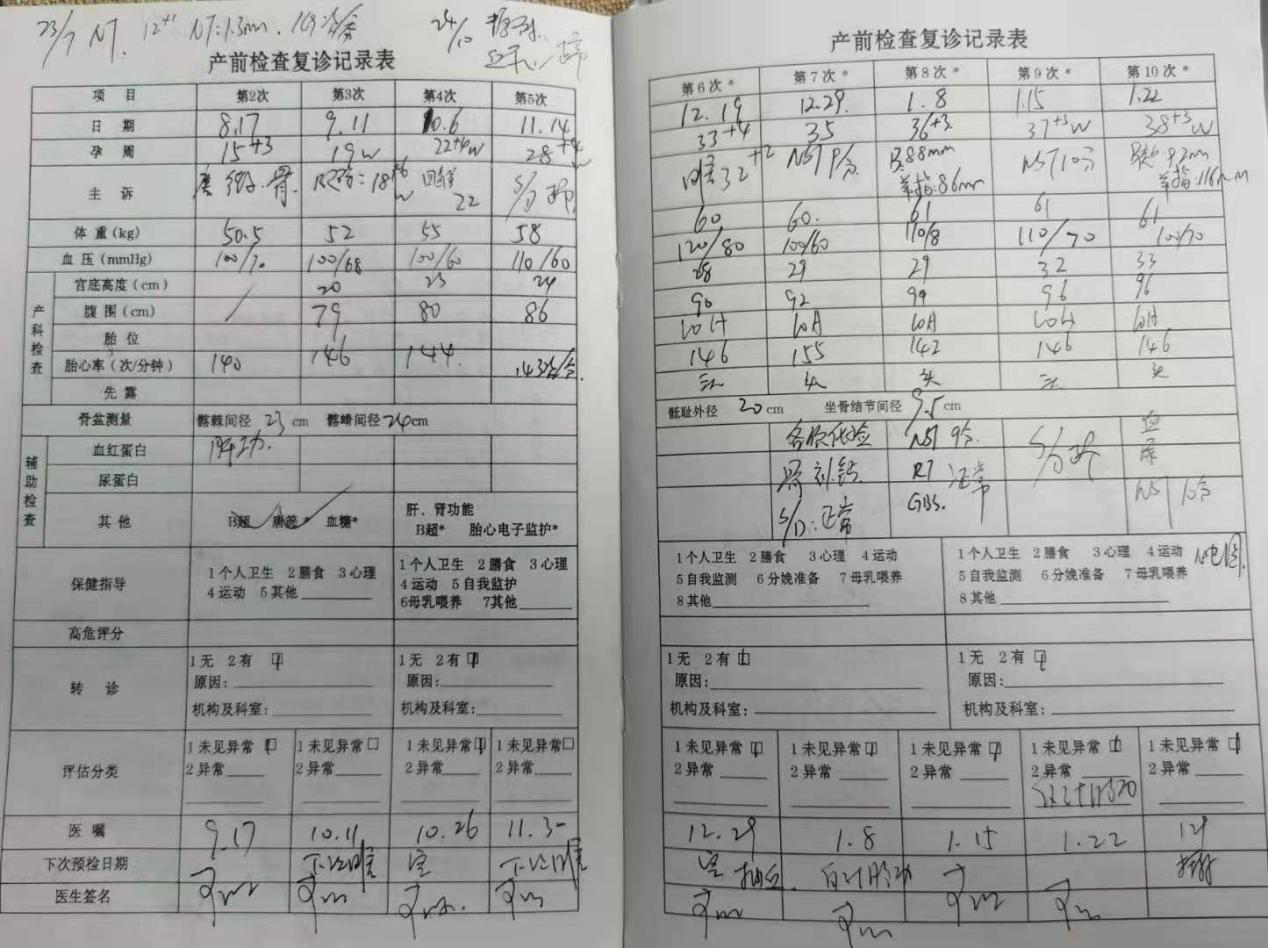 23/7 NT. 12+1 NT:1.3mm. 163次/分
24/10
产前检查复诊记录表
项 目 第2次 第3次 第4次 第5次
日 期 8.17 9.11 10.6 11.14
孕 周 15+3 19w 22+4w 28+4w
主 诉 四维22
体 重(kg) 50.5 52 55 58
血 压(mmHg) 100/70 100/68 100/60 110/60
产科检查
宫底高度(cm) 20 23 24
腹 围(cm) / 79 80 86
胎 位
胎心率(次/分钟) 140 146 144 143次/分
先 露
骨盆测量 髂棘间径 23 cm 髂嵴间径 24cm
辅助检查
血红蛋白
尿蛋白
其 他 B超* 唐筛* 血糖* 肝、肾功能
B超* 胎心电子监护*
保健指导
1个人卫生 2膳食 3心理
4运动 5其他
1个人卫生 2膳食 3心理
4运动 5自我监护
6母乳喂养 7其他
高危评分
转 诊
1无 2有
原因:
机构及科室:
1无 2有
原因:
机构及科室:
评估分类
1未见异常 1未见异常 1未见异常 1未见异常
2异常 2异常 2异常 2异常
医 嘱
9.17 10.11 10.26 11.30
下次预检日期
医生签名
产前检查复诊记录表
第6次* 第7次* 第8次* 第9次* 第10次*
12.19 12.29. 1.8 1.15 1.22
33+4 35 36+3 37+3w 38+3w
32+2 NST 9分 B:88mm NST10分 92mm
羊指:86mm 羊指:116mm
60 60. 61 61 61
120/80 100/60 110/8 110/70 100/70
28 29 29 32 33
90 92 94 96 96
LOA LOA LOA LOA LOA
146 155 142 146 146
头 头 头 头 头
骶耻外径 20 cm 坐骨结节间径 9.5 cm
各项化验 NST 9分 血
尿
补钙 RT 正常
S/D:正常 GBS. NST 10分
1个人卫生 2膳食 3心理 4运动
5自我监测 6分娩准备 7母乳喂养
8其他
1个人卫生 2膳食 3心理 4运动 心电图.
5自我监测 6分娩准备 7母乳喂养
8其他
1无 2有
原因:
机构及科室:
1无 2有
原因:
机构及科室:
1未见异常 1未见异常 1未见异常 1未见异常 1未见异常
2异常 2异常 2异常 2异常 2异常
12.29 1.8 1.15 1.22 129
抽血. 自计胎动